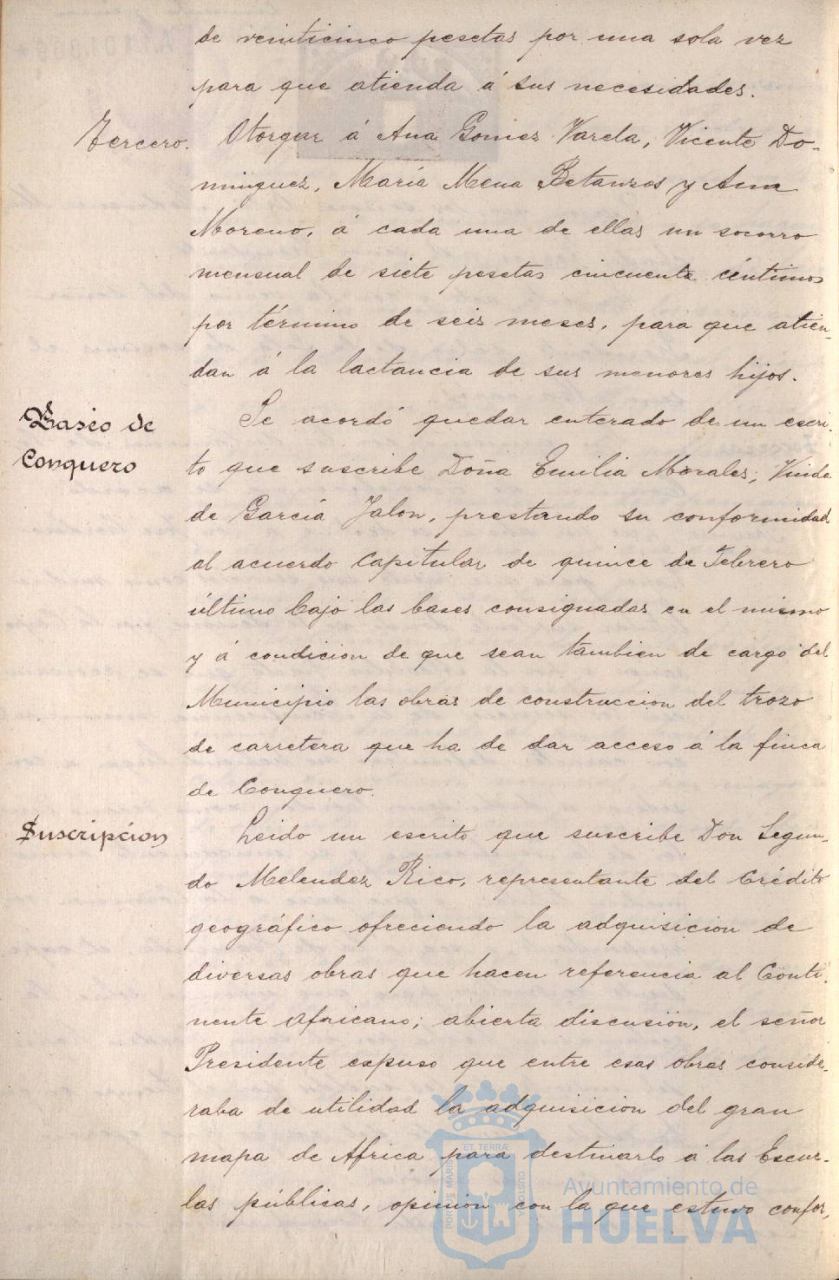 de veinticinco pesetas por una sola vez
para que atienda á sus necesidades.
Tercero. Otorgar á Ana Gomez Varela, Vicente Do-
minguez, María Mena Betanzos y Ana
Moreno, á cada una de ellas un socorro
mensual de siete pesetas cincuenta céntimos
por término de seis meses, para que atien-
dan á la lactancia de sus menores hijos.
Paseo de
Conquero
Se acordó quedar enterado de un escri-
to que suscribe Doña Emilia Morales, Viuda
de García Jalon, prestando su conformidad
al acuerdo Capitular de quince de Febrero
último bajo las bases consignadas en el mismo
y á condicion de que sean tambien de cargo del
Municipio las obras de construccion del trozo
de carretera que ha de dar acceso á la finca
de Conquero.
Suscripcion
Leido un escrito que suscribe Don Segun-
do Melendez Rico, representante del Crédito
geográfico ofreciendo la adquisicion de
diversas obras que hacen referencia al Conti-
nente Africano; abierta discusión, el señor
Presidente expuso que entre esas obras conside-
raba de utilidad la adquisicion del gran
mapa de Africa para destinarlo á las Escue-
las públicas, opinion con la que estuvo confor-
PORTUS MARIS ET TERRAE CUSTODIA
Ayuntamiento de
HUELVA